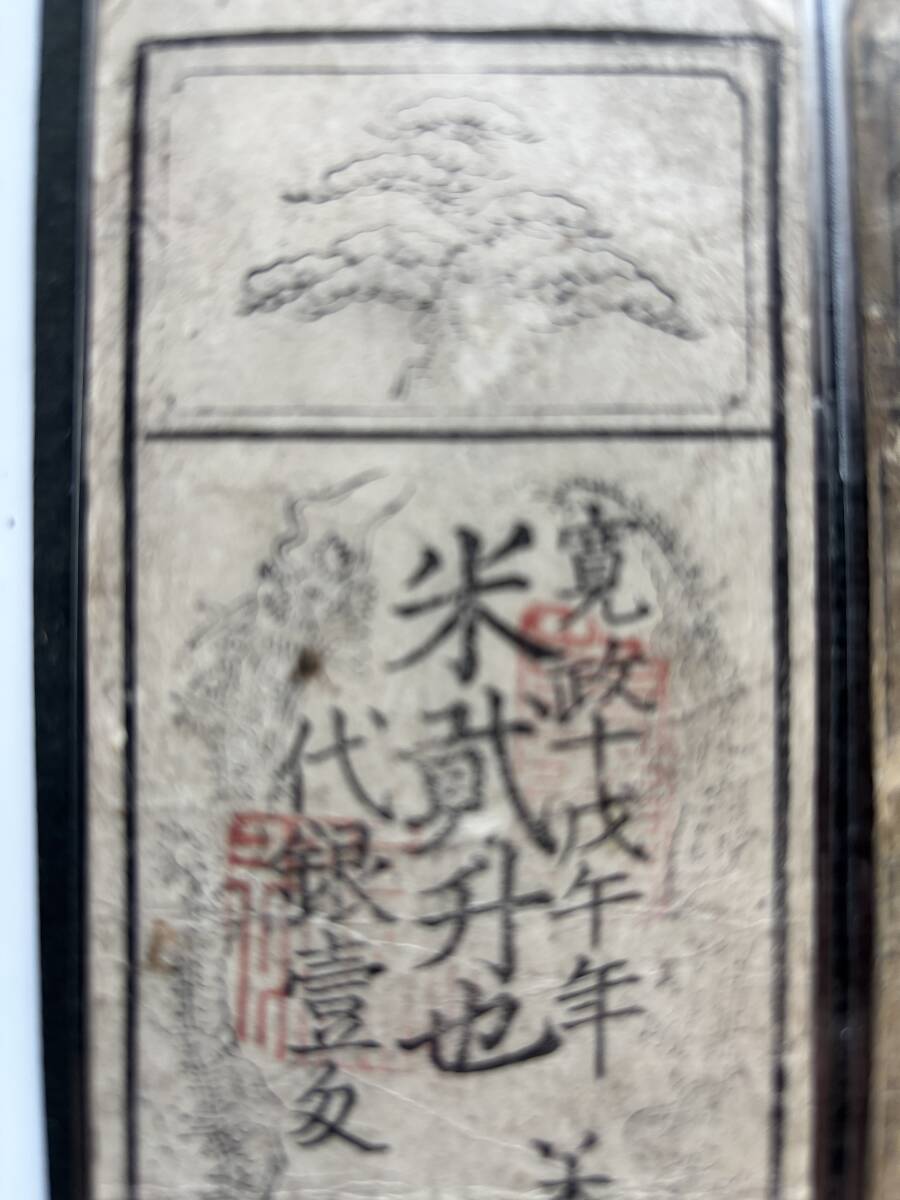 寛政十戊午年
米貳升也
代銀壹匁